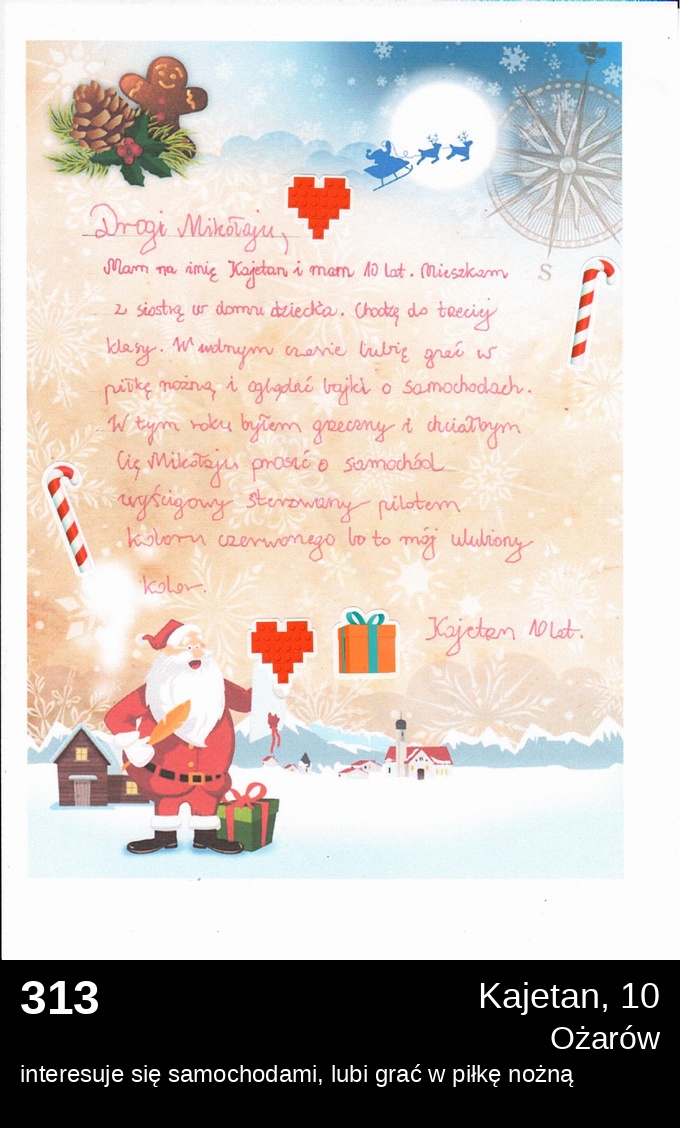 Drogi Mikołaju,
S
Mam na imię Kajetan i mam 10 lat. Mieszkam
z siostrą w domu dziecka. Chodzę do trzeciej
klasy. W wolnym czasie lubię grać w
piłkę nożną i oglądać bajki o samochodach.
W tym roku byłem grzeczny i chciałbym
Cię Mikołaju prosić o samochód
wyścigowy sterowany pilotem
koloru czerwonego bo to mój ulubiony
kolor.
Kajetan 10 lat.
313
Kajetan, 10
Ożarów
interesuje się samochodami, lubi grać w piłkę nożną